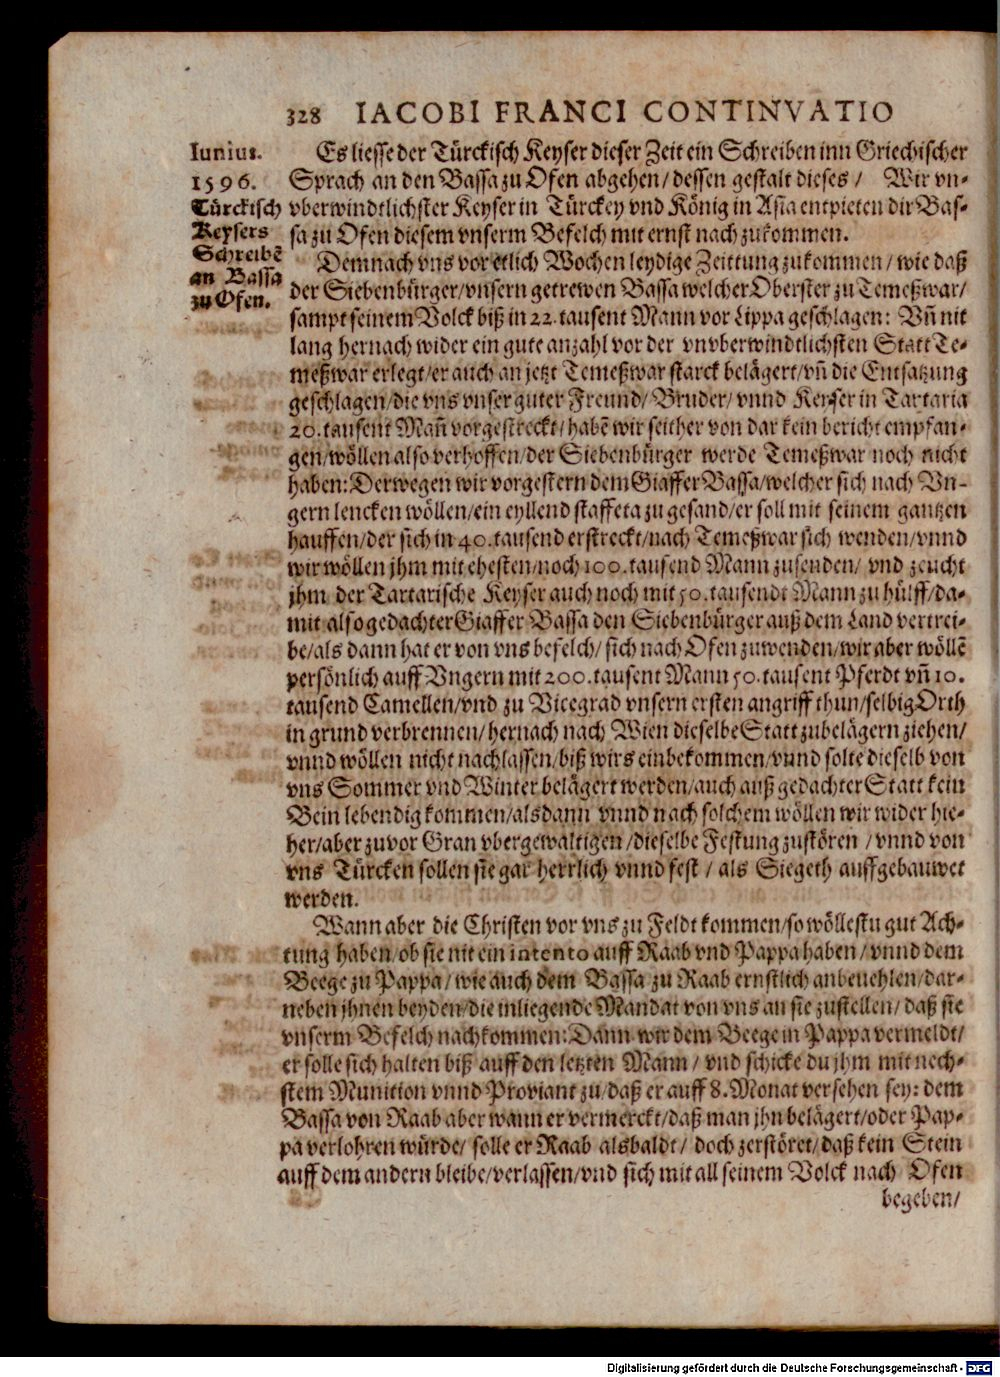 328 IACOBI FRANCI CONTINVATIO
Iunius.
1596.
Türckisch
Keysers
Schreibẽ
an Bassa
zu Ofen.
Es liesse der Türckisch Keyser dieser Zeit ein Schreiben inn Griechischer
Sprach an den Bassa zu Ofen abgehen/ dessen gestalt dieses/ Wir vn-
vberwindtlichster Keyser in Türckey vnd König in Asia entpieten dir Bas-
sa zu Ofen diesem vnserm Befelch mit ernst nach zukommen.
Demnach vns vor etlich Wochen leydige Zeittung zukommen/ wie daß
der Siebenbürger/ vnsern getrewen Bassa welcher Oberster zu Temeßwar/
sampt seinem Volck biß in 22. tausent Mann vor Lippa geschlagen: Vñ nit
lang hernach wider ein gute anzahl vor der vnvberwindtlichsten Statt Te-
meßwar erlegt/ er auch an jetzt Temeßwar starck belägert/ vñ die Entsatzung
geschlagen/ die vns vnser guter Freund/ Bruder/ vnnd Keyser in Tartaria
20. tausent Mañ vorgestreckt/ habẽ wir seither von dar kein bericht empfan-
gen/ wöllen also verhoffen/ der Siebenbürger werde Temeßwar noch nicht
haben: Derwegen wir vorgestern dem Giaffer Bassa/ welcher sich nach Vn-
gern lencken wöllen/ ein eyllend staffeta zu gesand/ er soll mit seinem gantzen
hauffen/ der sich in 40. tausend erstreckt/ nach Temeßwar sich wenden/ vnnd
wir wöllen jhm mit ehesten/ noch 100. tausend Mann zusenden/ vnd zeucht
jhm der Tartarische Keyser auch noch mit 50. tausendt Mann zu hülff/ da-
mit also gedachter Giaffer Bassa den Siebenbürger auß dem Land vertrei-
be/ als dann hat er von vns befelch/ sich nach Ofen zuwenden/ wir aber wöllẽ
persönlich auff Vngern mit 200. tausent Mann 50. tausent Pferdt vñ 10.
tausend Camellen/ vnd zu Vicegrad vnsern ersten angriff thun/ selbig Orth
in grund verbrennen/ hernach nach Wien dieselbe Statt zubelägern ziehen/
vnnd wöllen nicht nachlassen/ biß wirs einbekommen/ vnnd solte dieselb von
vns Sommer vnd Winter belägert werden/ auch auß gedachter Statt kein
Bein lebendig kommen/ alsdann vnnd nach solchem wöllen wir wider hie-
her/ aber zuvor Gran vbergewaltigen/ dieselbe Festung zustören/ vnnd von
vns Türcken sollen sie gar herrlich vnnd fest/ als Siegeth auffgebauwet
werden.
Wann aber die Christen vor vns zu Feldt kommen/ so wöllestu gut Ach-
tung haben/ ob sie nit ein intento auff Raab vnd Pappa haben/ vnnd dem
Beege zu Pappa/ wie auch dem Bassa zu Raab ernstlich anbeuehlen/ dar-
neben jhnen beyden/ die inliegende Mandat von vns an sie zustellen/ daß sie
vnserm Befelch nachkommen: Dann wir dem Beege in Pappa vermeldt/
er solle sich halten biß auff den letzten Mann/ vnd schicke du jhm mit nech-
stem Munition vnnd Proviant zu/ daß er auff 8. Monat versehen sey: dem
Bassa von Raab aber wann er vermerckt/ daß man jhn belägert/ oder Pap-
pa verlohren würde/ solle er Raab alsbaldt/ doch zerstöret/ daß kein Stein
auff dem andern bleibe/ verlassen/ vnd sich mit all seinem Volck nach Ofen
begeben/
Digitalisierung gefördert durch die Deutsche Forschungsgemeinschaft - DFG